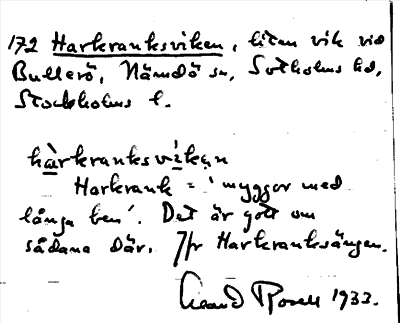 172 Harkranksviken, liten vik vid
Bullerö, Nämdö sn, Sotholms hd,
Stockholms l.
hàrkranksvíkęn
Harkrank = 'myggor med
långa ben'. Det är gott om
sådana där. Jfr Harkranksängen.
1933.